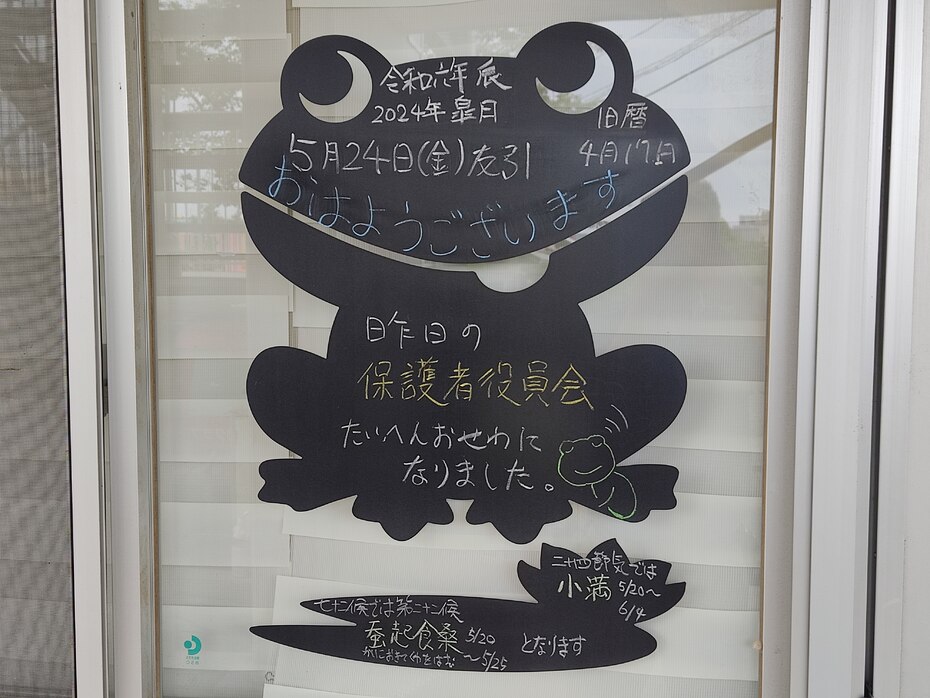 令和六年 辰
2024年 皐月
旧暦
5月24日(金)友引
4月17日
おはようございます
昨日の
保護者役員会
たいへんおせわに
なりました。
二十四節気では
小満 5/20〜
6/4
七十二候では第二十二候
蚕起食桑 5/20
かいこおきてくわをはむ 〜5/25
となります